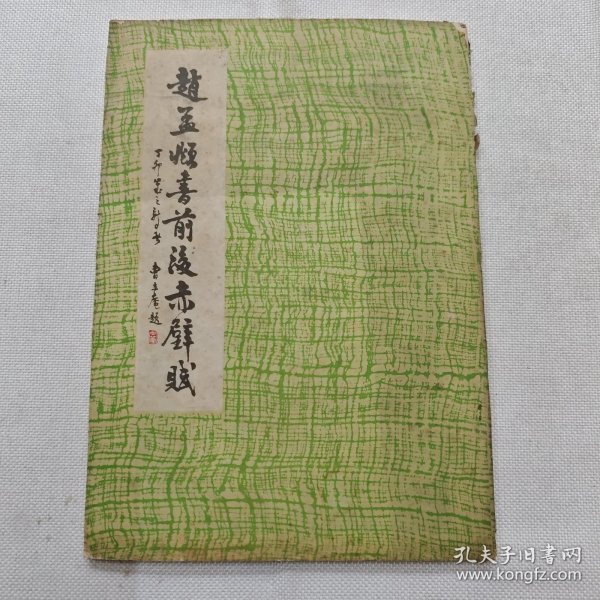 趙孟頫書前後赤壁賦
丁卯
曹立庵題
孔夫子旧书网
www.kongfz.com